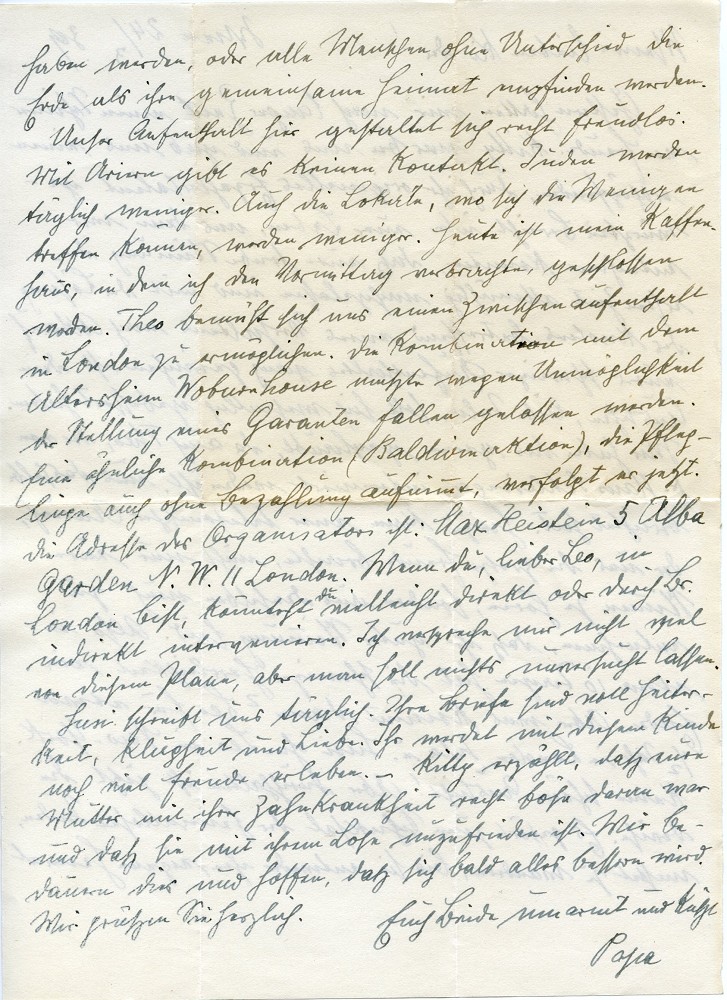 haben werden, oder alle Menschen ohne Unterschied die
Erde als ihre gemeinsame Heimat empfinden werden.
Unser Aufenthalt hier gestaltet sich recht freudlos.
Mit Ariern gibt es keinen Kontakt. Juden werden
täglich weniger. Auch die Lokale, wo sich die Wenigen
treffen können, werden weniger. Heute ist mein Kaffee-
haus, in dem ich den Vormittag verbrachte, geschlossen
worden. Theo bemüht sich uns einen Zwischenaufenthalt
in London zu ermöglichen. Die Kombination mit dem
Altersheim Woburnhouse mußte wegen Unmöglichkeit
der Stellung eines Garanten fallen gelassen werden.
Eine ähnliche Kombination (Baldwinaktion), die Pfleg-
linge auch ohne Bezahlung aufnimmt, verfolgt er jetzt.
Die Adresse des Organisators ist: Max Heistein 5 Alba
Garden N.W. 11 London. Wenn du, lieber Leo, in
London bist, könntest Du vielleicht direkt oder durch Br.
indirekt intervenieren. Ich verspreche mir nicht viel
von diesem Plane, aber man soll nichts unversucht lassen.
Susi schreibt uns täglich. Ihre Briefe sind voll Heiter-
keit, Klugheit und Liebe. Ihr werdet mit diesem Kinde
noch viel Freude erleben. – Kitty erzählt, daß eure
Mutter mit ihrer Zahnkrankheit recht böse daran war
und daß sie mit ihrem Lose unzufrieden ist. Wir be-
dauern dies und hoffen, daß sich bald alles bessern wird.
Wir grüßen Sie herzlich. Euch Beide umarmt und küßt
Papa